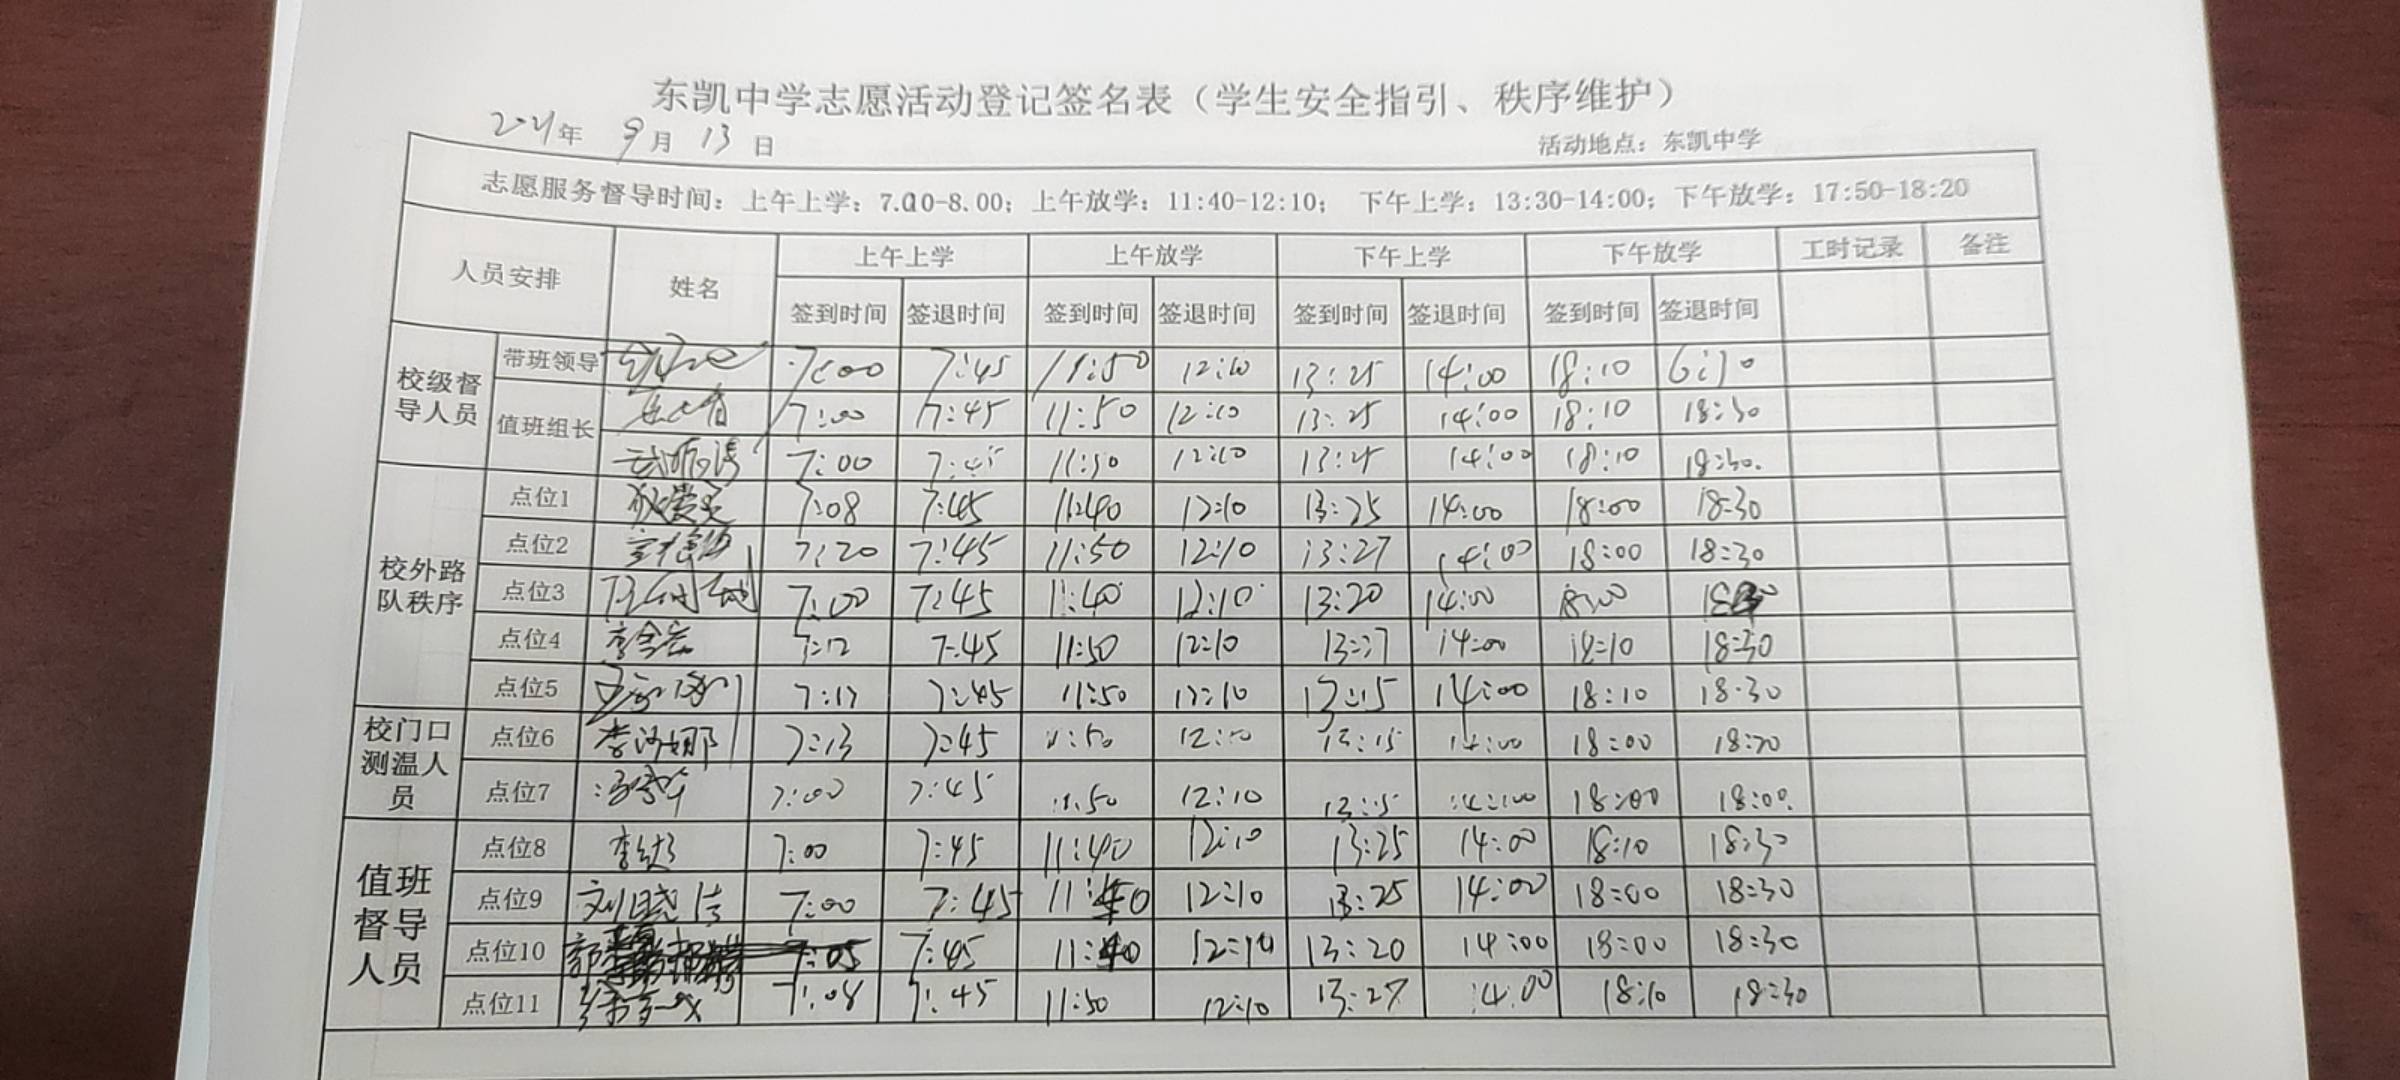 东凯中学志愿活动登记签名表（学生安全指引、秩序维护）
年 9月 13日 活动地点：东凯中学
志愿服务督导时间：上午上学：7.00-8.00；上午放学：11:40-12:10； 下午上学：13:30-14:00；下午放学：17:50-18:20
人员安排 姓名 上午上学 上午放学 下午上学 下午放学 工时记录 备注
签到时间 签退时间 签到时间 签退时间 签到时间 签退时间 签到时间 签退时间
校级督导人员 带班领导 7:00 7:45 11:50 12:10 13:25 14:00 18:10
值班组长 7:00 7:45 11:50 12:10 13:25 14:00 18:10 18:30
7:00 7:45 11:50 12:10 13:25 14:00 18:10 18:30
校外路队秩序 点位1 7:08 7:45 11:40 12:10 13:25 14:00 18:00 18:30
点位2 7:20 7:45 11:50 12:10 13:27 14:00 18:00 18:30
点位3 7:00 7:45 11:40 12:10 13:20 14:00 18:00
点位4 7:12 7:45 11:50 12:10 13:27 14:00 18:10 18:30
点位5 7:45 11:50 12:10 14:00 18:10 18:30
校门口测温人员 点位6 李 娜 7:13 7:45 11:50 12:10 13:15 14:00 18:00
点位7 7:00 7:45 11:50 12:10 14:00 18:00 18:00
值班督导人员 点位8 李 7:00 7:45 11:40 12:10 13:25 14:00 18:10 18:30
点位9 刘晓 7:00 7:45 11:40 12:10 13:25 14:00 18:00 18:30
点位10 郭 7:05 7:45 11:40 12:10 13:20 14:00 18:00 18:30
点位11 7:08 7:45 11:50 12:10 13:27 14:00 18:10 18:30